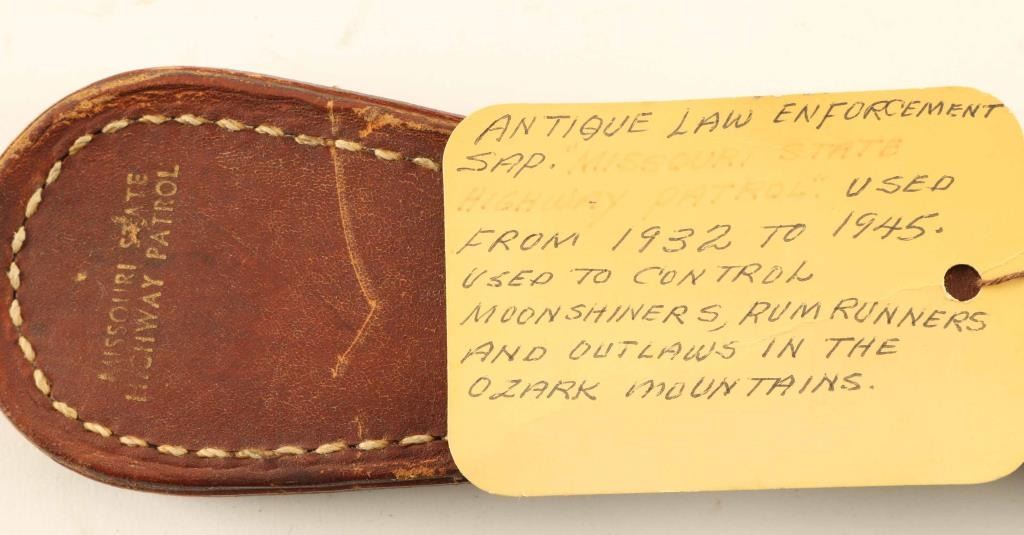 MISSOURI STATE
HIGHWAY PATROL
ANTIQUE LAW ENFORCEMENT
SAP. "MISSOURI STATE
HIGHWAY PATROL". USED
FROM 1932 TO 1945.
USED TO CONTROL
MOONSHINERS, RUM RUNNERS
AND OUTLAWS IN THE
OZARK MOUNTAINS.